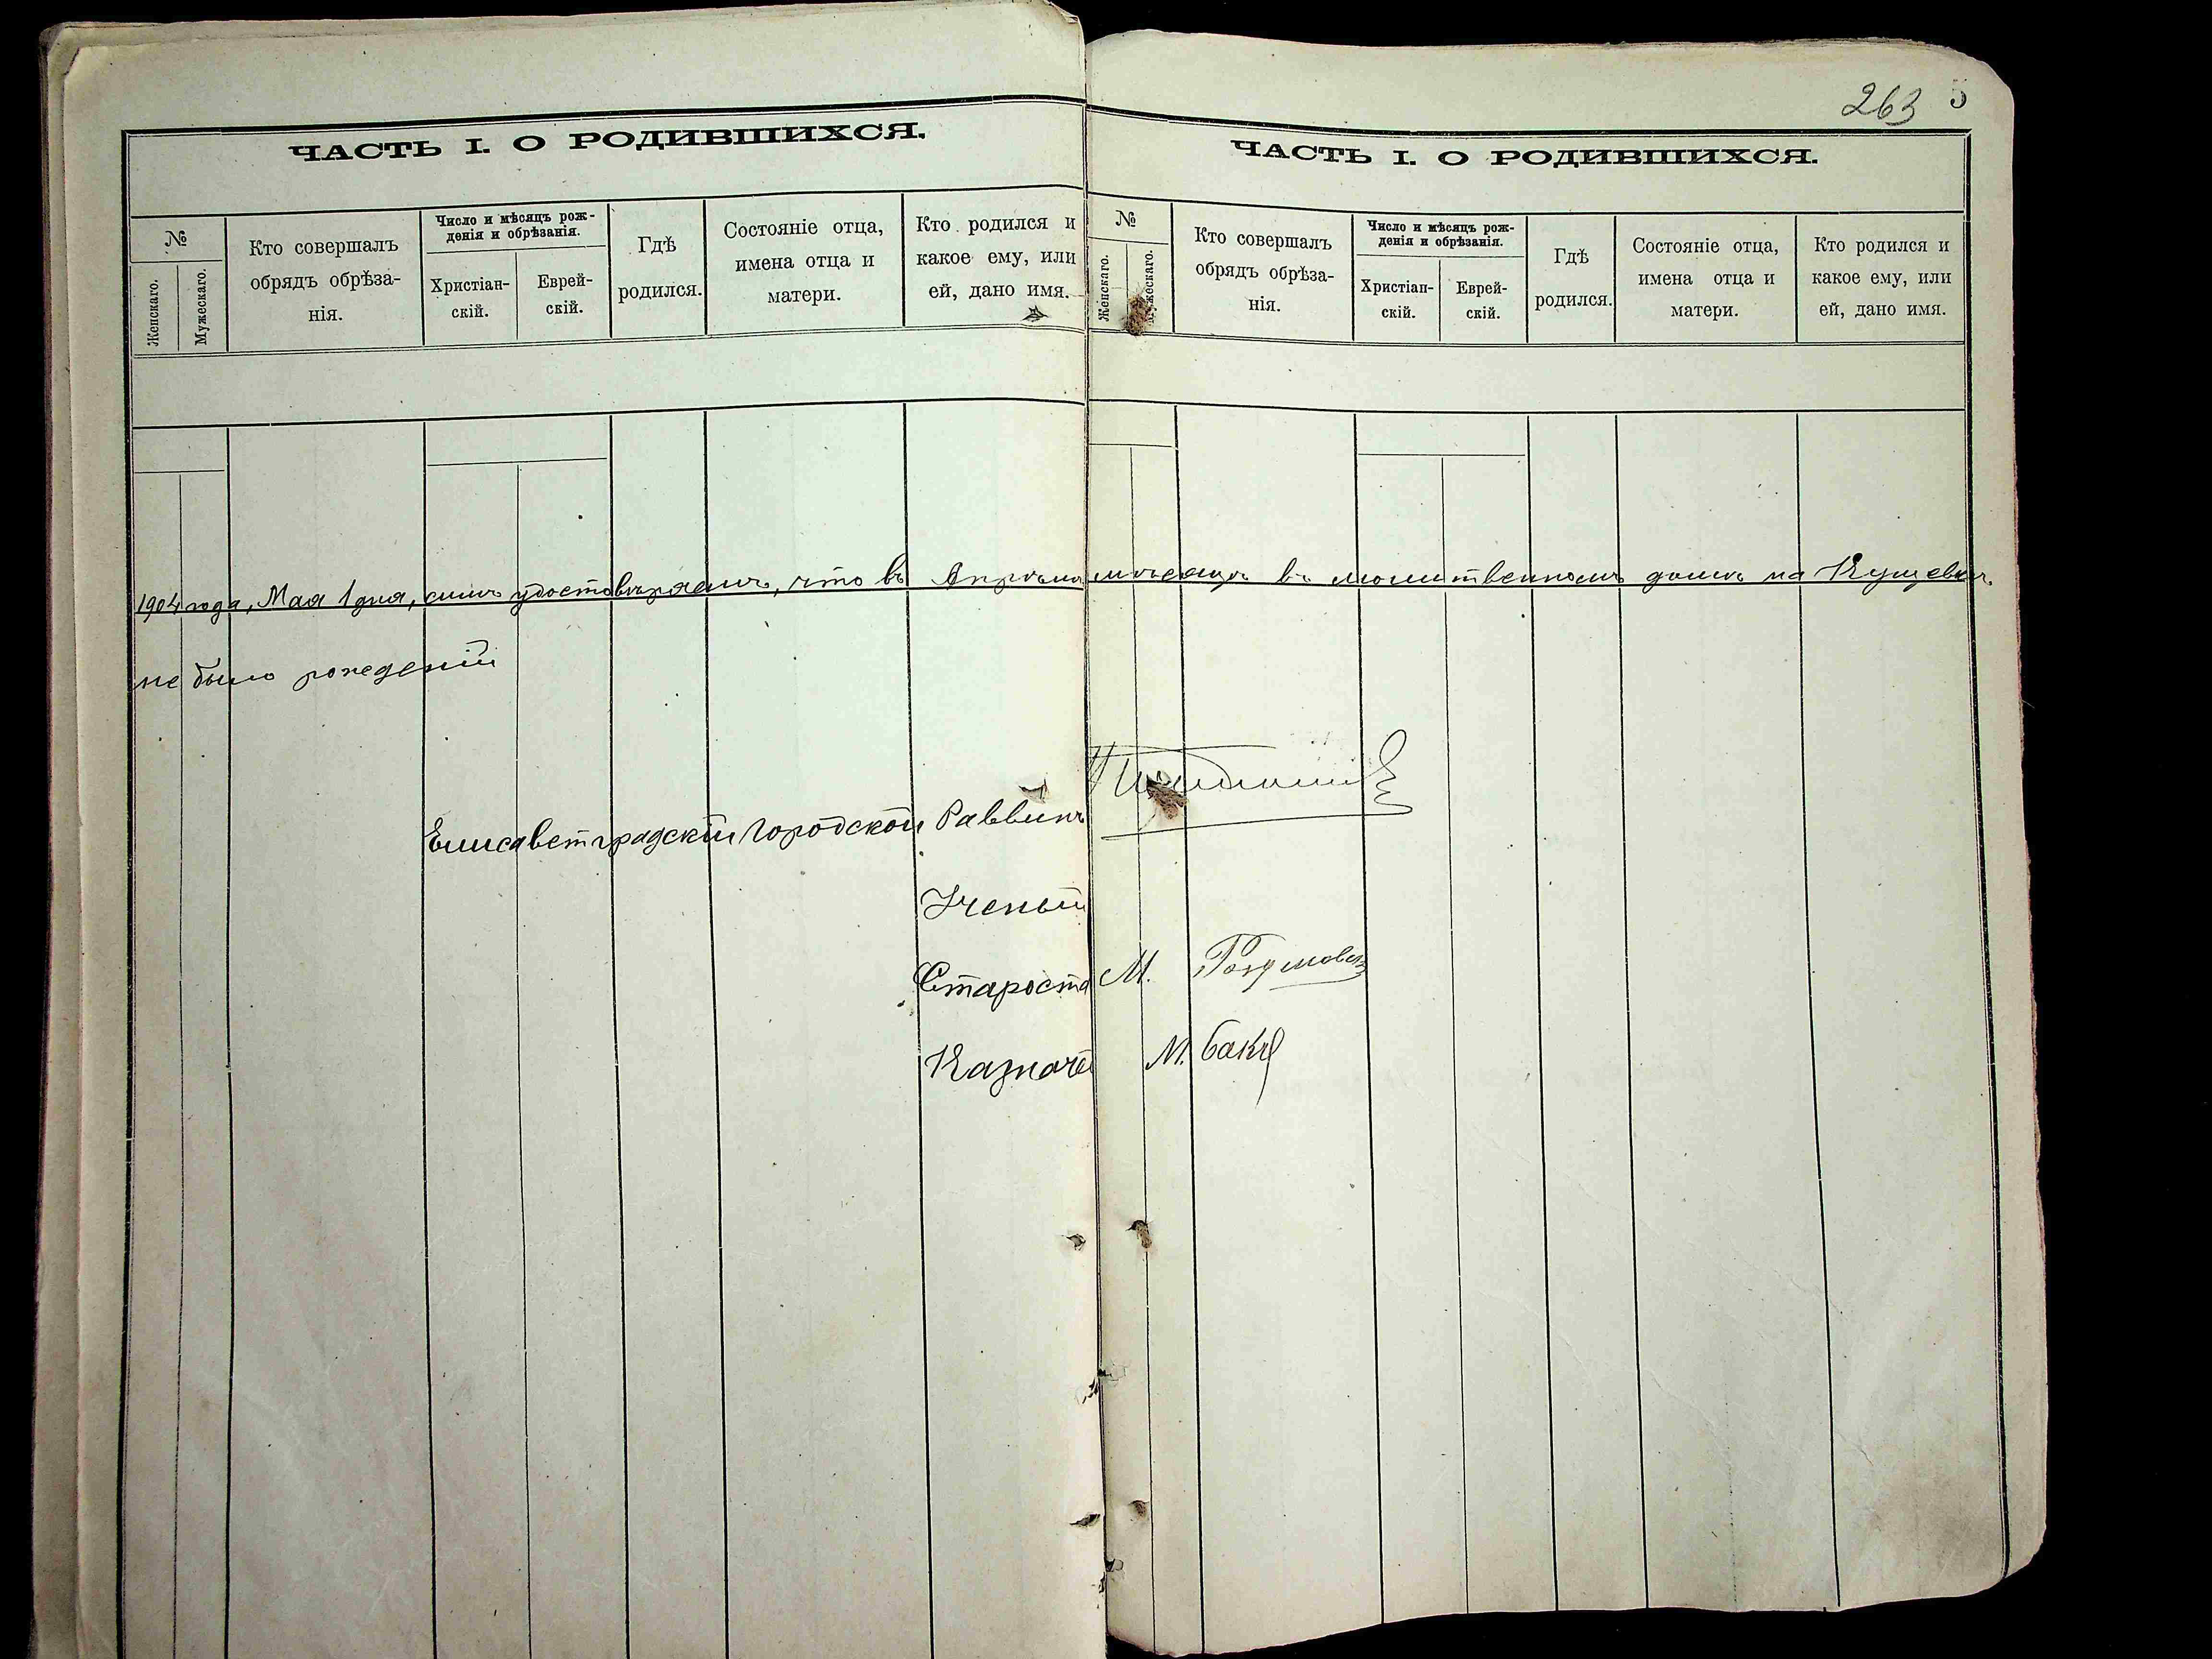 ЧАСТЬ I. О РОДИВШИХСЯ.
№
Женскаго.
Мужескаго.
Кто совершалъ
обрядъ обрѣза-
нія.
Число и мѣсяцъ рож-
денія и обрѣзанія.
Христіан-
скій.
Еврей-
скій.
Гдѣ
родился.
Состояніе отца,
имена отца и
матери.
Кто родился и
какое ему, или
ей, дано имя.
263 5
ЧАСТЬ I. О РОДИВШИХСЯ.
№
Женскаго.
Мужескаго.
Кто совершалъ
обрядъ обрѣза-
нія.
Число и мѣсяцъ рож-
денія и обрѣзанія.
Христіан-
скій.
Еврей-
скій.
Гдѣ
родился.
Состояніе отца,
имена отца и
матери.
Кто родился и
какое ему, или
ей, дано имя.
1904 года, Мая 1 дня, симъ удостовѣряемъ, что въ Апрѣлѣ мѣсяцѣ въ молитвенномъ домѣ на Кущевкѣ
не было рожденій
Елисаветградскій Городской Раввинъ
Ученый
Староста М.
Казначей М.